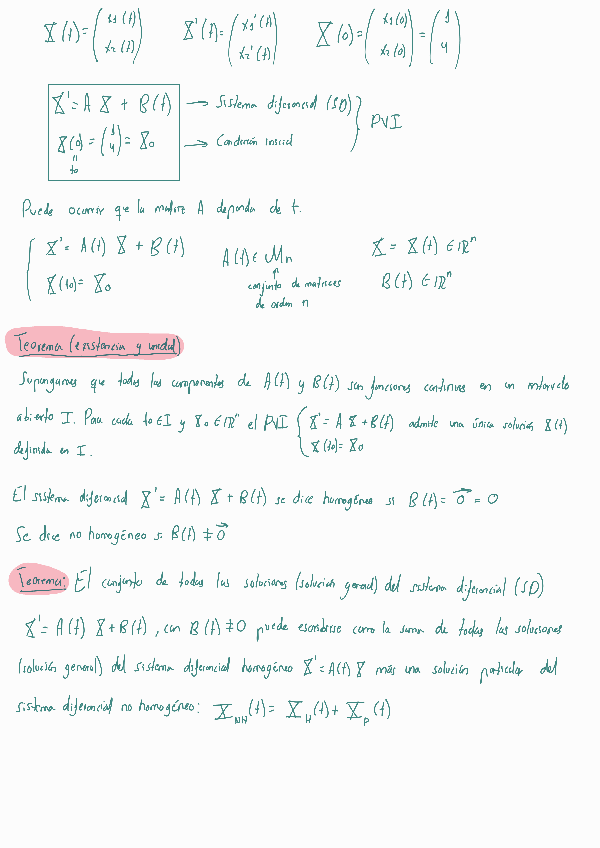 X(t) = (x1(t) x2(t)) X'(t) = (x1'(t) x2'(t)) X(0) = (x1(0) x2(0)) = (1 4)
X' = A X + B(t) → Sistema diferencial (SD)
X(0) = (1 4) = X0 → Condición inicial } PVI
"
t0
Puede ocurrir que la matriz A dependa de t.
{ X' = A(t) X + B(t) A(t) ∈ Mn X = X(t) ∈ IRⁿ
X(t0) = X0 conjunto de matrices B(t) ∈ IRⁿ
de orden n
Teorema (existencia y unidad)
Supongamos que todas las componentes de A(t) y B(t) son funciones continuas en un intervalo
abierto I. Para cada t0 ∈ I y X0 ∈ IRⁿ el PVI { X' = A X + B(t) admite una única solución X(t)
X(t0) = X0
definida en I.
El sistema diferencial X' = A(t) X + B(t) se dice homogéneo si B(t) = 0⃗ = 0
Se dice no homogéneo si B(t) ≠ 0⃗
Teorema: El conjunto de todas las soluciones (solución general) del sistema diferencial (SD)
X' = A(t) X + B(t), con B(t) ≠ 0 puede escribirse como la suma de todas las soluciones
(solución general) del sistema diferencial homogéneo X' = A(t) X más una solución particular del
sistema diferencial no homogéneo: X_NH(t) = X_H(t) + X_P(t)